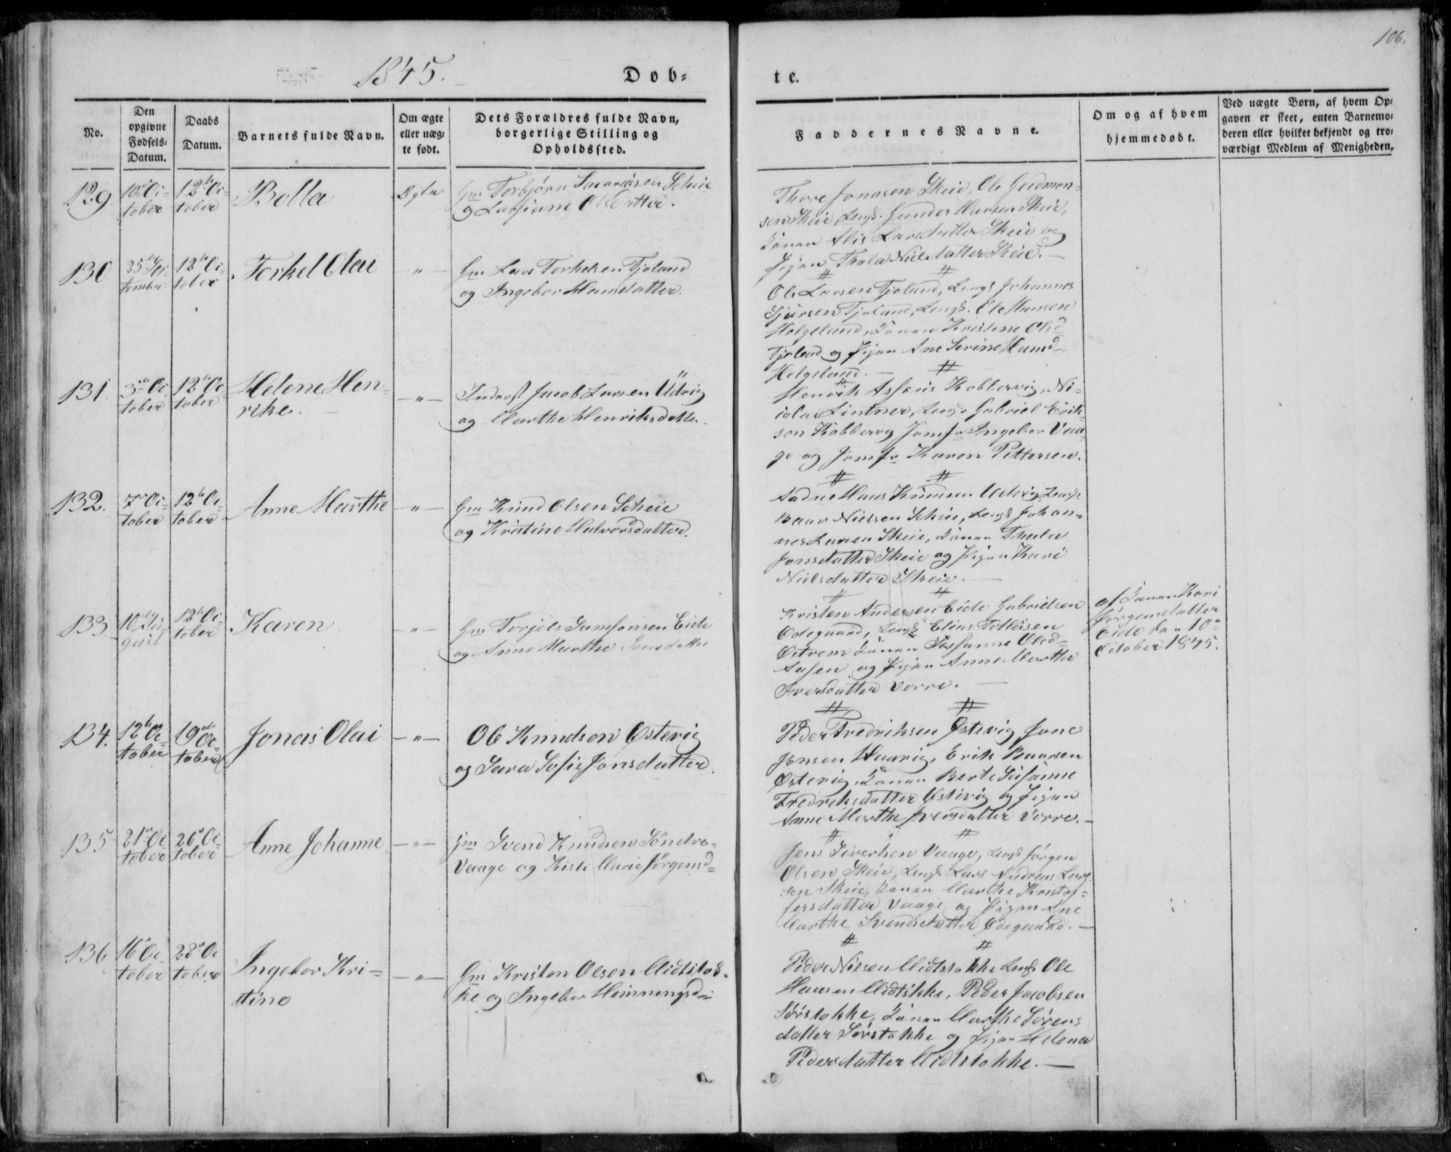 1845.
Døb-
te.
106.
No.
Den opgivne Fødsels-Datum.
Daabs Datum.
Barnets fulde Navn.
Om ægte eller uægte født.
Dets Forældres fulde Navn, borgerlige Stilling og Opholdssted.
Faddernes Navne.
Om og af hvem hjemmedøbt.
Ved uægte Børn, af hvem Opgaven er skeet, enten Barnemoderen eller hvilket bekjendt og troværdigt Medlem af Menigheden.
129
10de Oc-
tober
12te Oc-
tober
Bolla
Ægte
Gm Torbjørn Scheie
og Olsdatter.
Thore Jonassen Skeie, Ole Gudmun-
sen Skeie, Ungk. Gunder Hansen Skeie,
Konen Larsdatter Skeie og
Pigen Thala Nielsdatter Skeie.
130
25de Sep-
tember
12te Oc-
tober
Torkel Olai
-"-
Gm Lars Torkelsen Tjoland
og Ingebor Hansdatter.
Ole Larsen Tjoland, Ungk Johannes
Tjoland, Ungk. Ole Hansen
Helgeland, Konen Kristine Olsd-
Tjoland og Pigen Ane Serine Hansd-
Helgeland.
131
5te Oc-
tober
12te Oc-
tober
Helene Hen-
rike.
-"-
Jacob Larsen Udvig
og Marthe Henriksdatter.
Henrik Kobbervig, Ni-
colai Lintner, Ungk Gabriel Erik-
sen Kobbervig Jomfr Ingebor Vaa-
ge og Jomfr Karen Pettersen.
132.
7de Oc-
tober
12te Oc-
tober
Anne Marthe
-"-
Gm Knud Olsen Scheie
og Kristine Halvorsdatter.
Hans Knudsen Udvig, Ungk
Baar Nielsen Scheie, Ungk Johan-
nes Larsen Skeie, Konen Thala
Jonsdatter Skeie og Pigen Kari
Nielsdatter Skeie.
133
10de
12te Oc-
tober
Karen
-"-
Gm Torjels Eide
og Anne Marthe
Kristen Andersen Eide Gabrielsen
Ødegaard, Ungk Elias Tollisen
Østrem Konen Susanne Olsd-
og Pigen Anne Marthe
Iversdatter Vorre.
af Konen Kari
Jørgensdatter
Eide den 10de
October 1845.
134.
12te Oc-
tober
19de Oc-
tober
Jonas Olai
-"-
Ole Knudsen Østevig
og Sara Sofie Jonsdatter.
Peder Fredriksen Østevig, Jone
Jonsen Haavig, Erik Baarsen
Østevig, Konen Berte Susanne
Fredriksdatter Østevig og Pigen
Anne Marthe Iversdatter Vorre.
135
21de Oc-
tober
26de Oc-
tober
Anne Johanne
-"-
Gm Svend Knudsen Søndre-
Vaage og Marie Jørgensd-
Jens Sivertsen Vaage, Ungk Jørgen
Olsen Skeie, Ungk Lars Andreas Lar-
sen Skeie, Konen Marthe Kristof-
fersdatter Vaage og Pigen Ane
Marthe Svendsdatter Ødegaard.
136
16de Oc-
tober
28de Oc-
tober
Ingebor Kri-
stine
-"-
Gm Kristen Olsen Midtstok-
ke og Ingebor Henningsd-
Peder Nielsen Midtstokke Ungk Ole
Hansen Midtstokke, Peder Jacobsen
Sørstokke, Konen Marthe Sørens
datter Sørstokke og Pigen Helena
Pedersdatter Midtstokke.